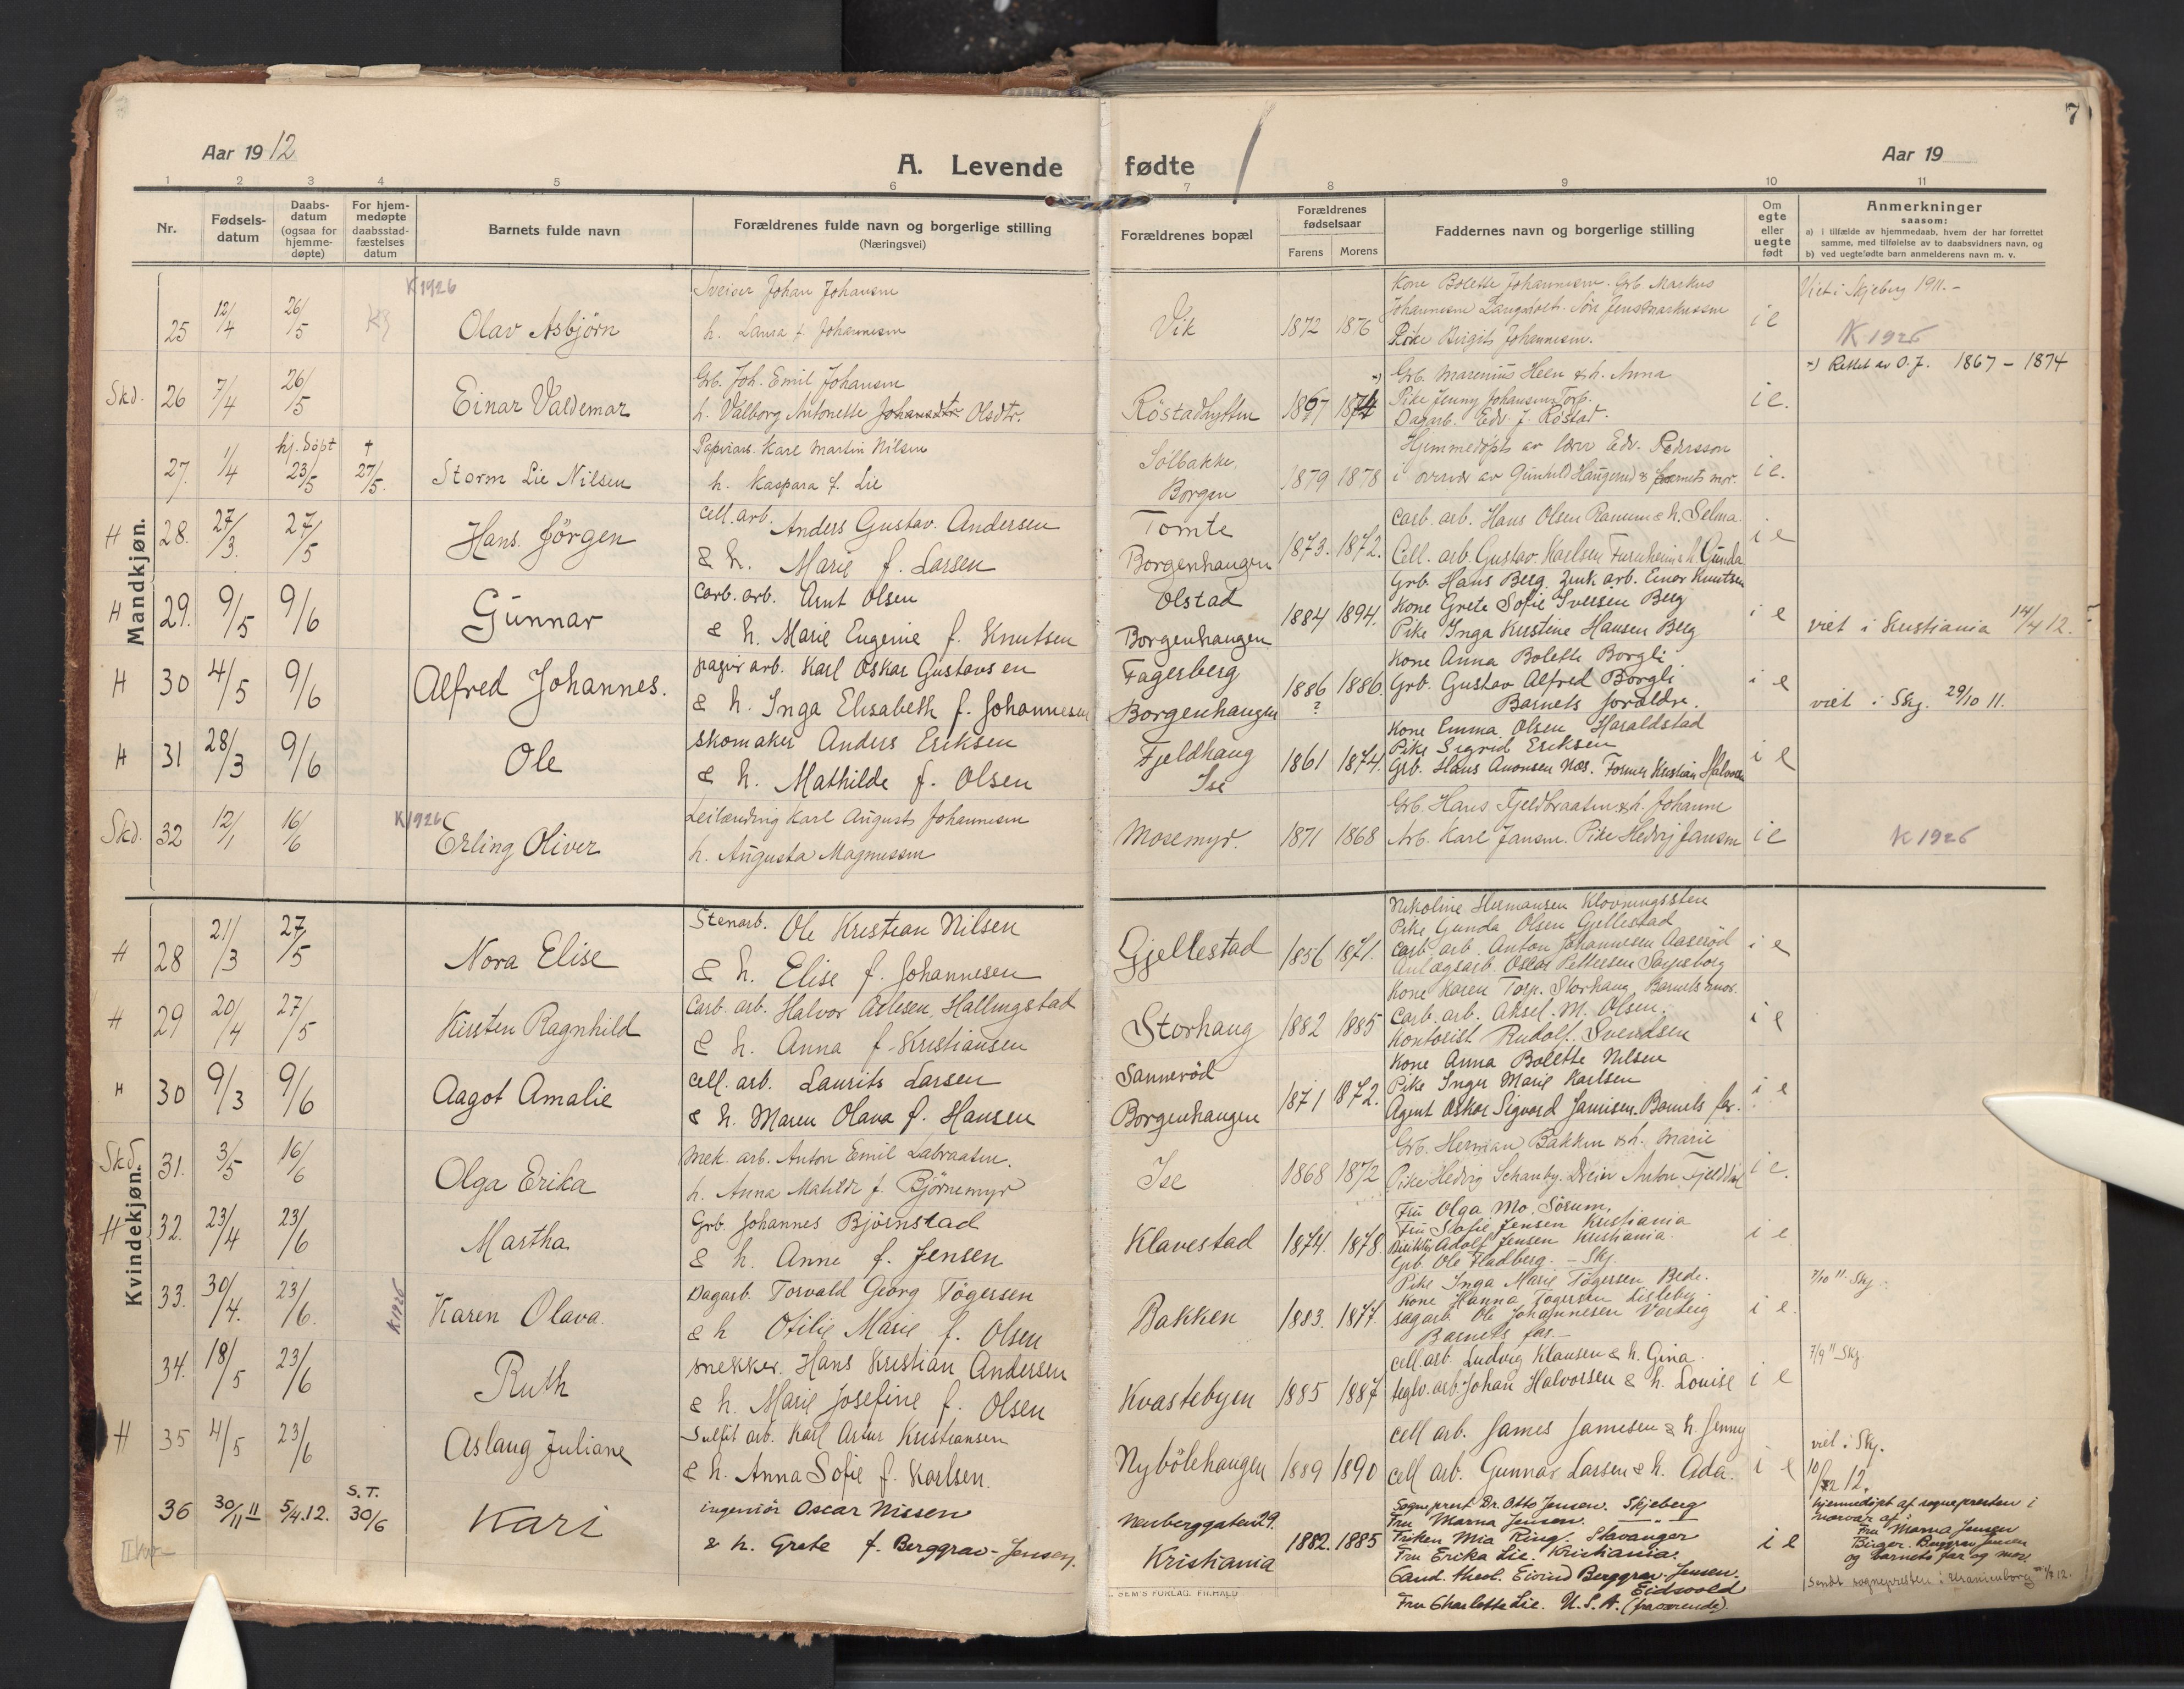 7
Aar 1912
A. Levende fødte
Aar 19
1 2 3 4 5 6 7 8 9 10 11
Nr.
Fødsels-datum
Daabs-datum (ogsaa for hjemme-døpte)
For hjem-medøpte daabsstad-fæstelses datum
Barnets fulde navn
Forældrenes fulde navn og borgerlige stilling
(Næringsvei)
Forældrenes bopæl
Forældrenes fødselsaar
Farens Morens
Faddernes navn og borgerlige stilling
Om egte eller uegte født
Anmerkninger
saasom:
a) i tilfælde av hjemmedaab, hvem der har forrettet samme, med tilføielse av to daabsvidners navn, og
b) ved uegtefødte barn anmelderens navn m. v.
Mandkjøn.
K 1926
25 12/4 26/5 Olav Asbjörn
Sveiser Johan Johansen
h. Laura f. Johannesen
Vik 1872 1876
Kone Bolette Johannesen. Grb. Markus
Johannesen Langholt. Jens Markussen
Pike Birgit Johannesen.
i e
Viet i Skjeberg 1911.-
K 1926
Skd. 26 7/4 26/5 Einar Valdemar
Grb. Joh. Emil Johansen
h. Valborg Antonette Johansdtr. Olsdtr.
Röstadhytten 1867 1874
Grb. Marenius Heen & h. Anna
Pike Jenny Johansen Torp.
Dagarb. Edv. J. Röstad.
i e.
Rettet av O. J. 1867 - 1874
27. 1/4 hj. döpt 23/5 † 27/5. Storm Lie Nilsen
Papirarb. Karl Martin Nilsen
h. Kaspara f. Lie
Sölbakke,
Borgen
1879 1878
Hjemmedöpt av lærer Edv. Pedersson
i overvær av Gunhild Haugerud & barnets mor.
i e.
H 28. 27/3. 27/5 Hans Jörgen
cell. arb. Anders Gustav Andersen
& h. Marie f. Larsen
Tomte
Borgenhaugen
1873. 1872.
Carb. arb. Hans Olsen Ranum & h. Selma.
Cell. arb. Gustav Karlsen Furuheim & h. Gunda
i e
H 29. 9/5 9/6 Gunnar
Carb. arb. Arnt Olsen
& h. Marie Eugenie f. Knutsen
Olstad
Borgenhaugen
1884 1894.
Grb. Hans Berg. Zink arb. Einar Knutsen
Kone Grete Sofie Iversen Berg
Pike Inga Kristine Hansen Berg
i e
viet i Kristiania 14/4 12.
H 30 4/5 9/6 Alfred Johannes.
papir arb. Karl Oskar Gustavsen
& h. Inga Elisabeth f. Johannesen
Fagerberg
Borgenhaugen
1886 ? 1886.
Kone Anna Bolette Borgli
Grb. Gustav Alfred Borgli
Barnets foraldre.
i e
viet i Skj. 29/10 11.
H 31 28/3 9/6 Ole
skomaker Anders Eriksen
& h. Mathilde f. Olsen
Fjeldhaug
Ise
1861 1874.
Kone Emma Olsen Haraldstad
Pike Sigrid Eriksen
Grb. Hans Anonsen Næs. Former Kristian Halvorsen
i e
K 1926
Skd. 32 12/1 16/6 Erling Oliver
Leilænding Karl August Johannesen
h. Augusta Magnussen
Mosemyr. 1871 1868
Grb. Hans Fjeldbraaten & h. Johanne
Arb. Karl Jansen. Pike Hedvig Jansen
i e
K 1926
Kvindekjøn.
H 28 21/3 27/5 Nora Elise
Stenarb. Ole Kristian Nilsen
& h. Elise f. Johannesen
Gjellestad 1856 1871.
Nikoline Hermansen Klovningssten
Pike Gunda Olsen Gjellestad
Carb. arb. Anton Johannesen Aaseröd
Anlægsarb. Oscar Pettersen Sarpsborg
i e
H 29 20/4 27/5 Kirsten Ragnhild
Carb. arb. Halvor Adlesen, Hallingstad
& h. Anna f. Kristiansen
Storhaug 1882 1885
Kone Karen Torp. Storhaug. Barnets mor.
Carb. arb. Aksel. M. Olsen.
Kontorist Rudolf. Svendsen
i e
H 30 9/3 9/6 Aagot Amalie
cell. arb. Laurits Larsen
& h. Maren Olava f. Hansen
Sanneröd
Borgenhaugen
1871 1872.
Kone Anna Bolette Nilsen
Pike Inger Marie Karlsen
Agent Oskar Sigvard Jamisen. Barnets far.
i e
Skd. 31. 3/5 16/6 Olga Erika
Mek. arb. Anton Emil Labraaten.
h. Anna Matilde f. Björnemyr
Ise 1868 1872
Grb. Herman Bakken & h. Marie
Pike Hedvig Schanby. Dreier Anton Fjelddal
i e.
H 32. 23/4 23/6 Martha
Grb. Johannes Bjørnstad
& h. Anne f. Jensen
Klavestad 1874. 1878.
Fru Olga Mo. Sörum.
Fru Slafie Jensen Kristiania
Adolf Jensen Kristiania.
Grb. Ole Fladberg. - Skj.
i e
K 1926
33. 30/4. 23/6. Karen Olava.
Dagarb. Torvald Georg Tögersen
& h Otilie Marie f. Olsen
Bakken 1883. 1877.
Pike Inga Marie Tögersen Bede.
Kone Hanna Tögersen Lisleby
sagarb. Ole Johannesen Varteig
Barnets far.-
i e.
7/10 11. Skj.
34. 18/5 23/6 Ruth
snekker. Hans Kristian Andersen
& h. Marie Josefine f. Olsen
Kvastebyen 1885 1887
cell. arb. Ludvig Klausen & h. Gina.
teglv. arb. Johan Halvorsen & h. Louise
i e
7/9 11 Skj.
H 35 4/5 23/6 Aslaug Juliane
Sulfit arb. Karl Artur Kristiansen
& h. Anna Sofie f. Karlsen.
Nybölehaugen 1889 1890
cell arb. James Jamesen & h. Jenny
cell arb. Gunnar Larsen & h. Ada.
i e
viet i Skj.
10/ 12.
36 30/11 11 5/4.12. S.T. 30/6 Kari
ingeniör Oscar Nissen
& h. Grete f. Berggrav-Jensen.
Neuberggaten 29.
Kristiania
1882. 1885
Sogneprest Dr. Otto Jensen. Skjeberg
Fru Marna Jensen. — " —
Frøken Mia Ring. Stavanger
Fru Erika Lie. Kristiania.
Cand. theol. Eivind Berggrav-Jensen.
Eidsvold
Fru Charlotte Lie. U.S.A. (fraværende)
i e
hjemmedöpt af sognepresten i
nærvær af:
Fru Marna Jensen
Birger. Berggrav Jensen
og barnets far og mor.
Sendt sognepresten i Uranienborg 12.
SEM'S FORLAG. FR.HALD